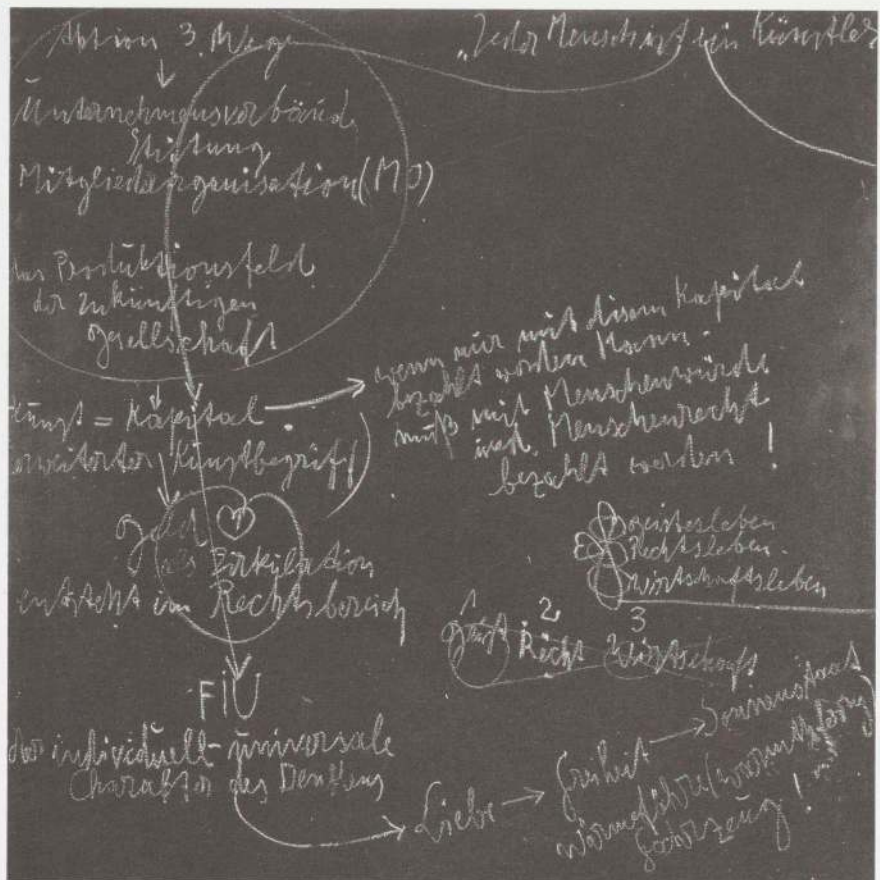 Aktion 3. Weg
„Jeder Mensch ist ein Künstler
Unternehmensverbände
Stiftung
Mitgliederorganisation (MO)
das Produktionsfeld
der zukünftigen
Gesellschaft
Kunst = Kapital
erweiterter Kunstbegriff
wenn nur mit disem Kapital
bezahlt werden kann -
muß mit Menschenwürde
und Menschenrecht
bezahlt werden !
Geld
als Zirkulation
entsteht im Rechtsbereich
Geistesleben
Rechtsleben
Wirtschaftsleben
1 2 3
Geist Recht Wirtschaft
FiU
der individuell-universale
Charakter des Denkens
Liebe → Freiheit → Sonnenstaat
Wärmefähre
Fahrzeug !